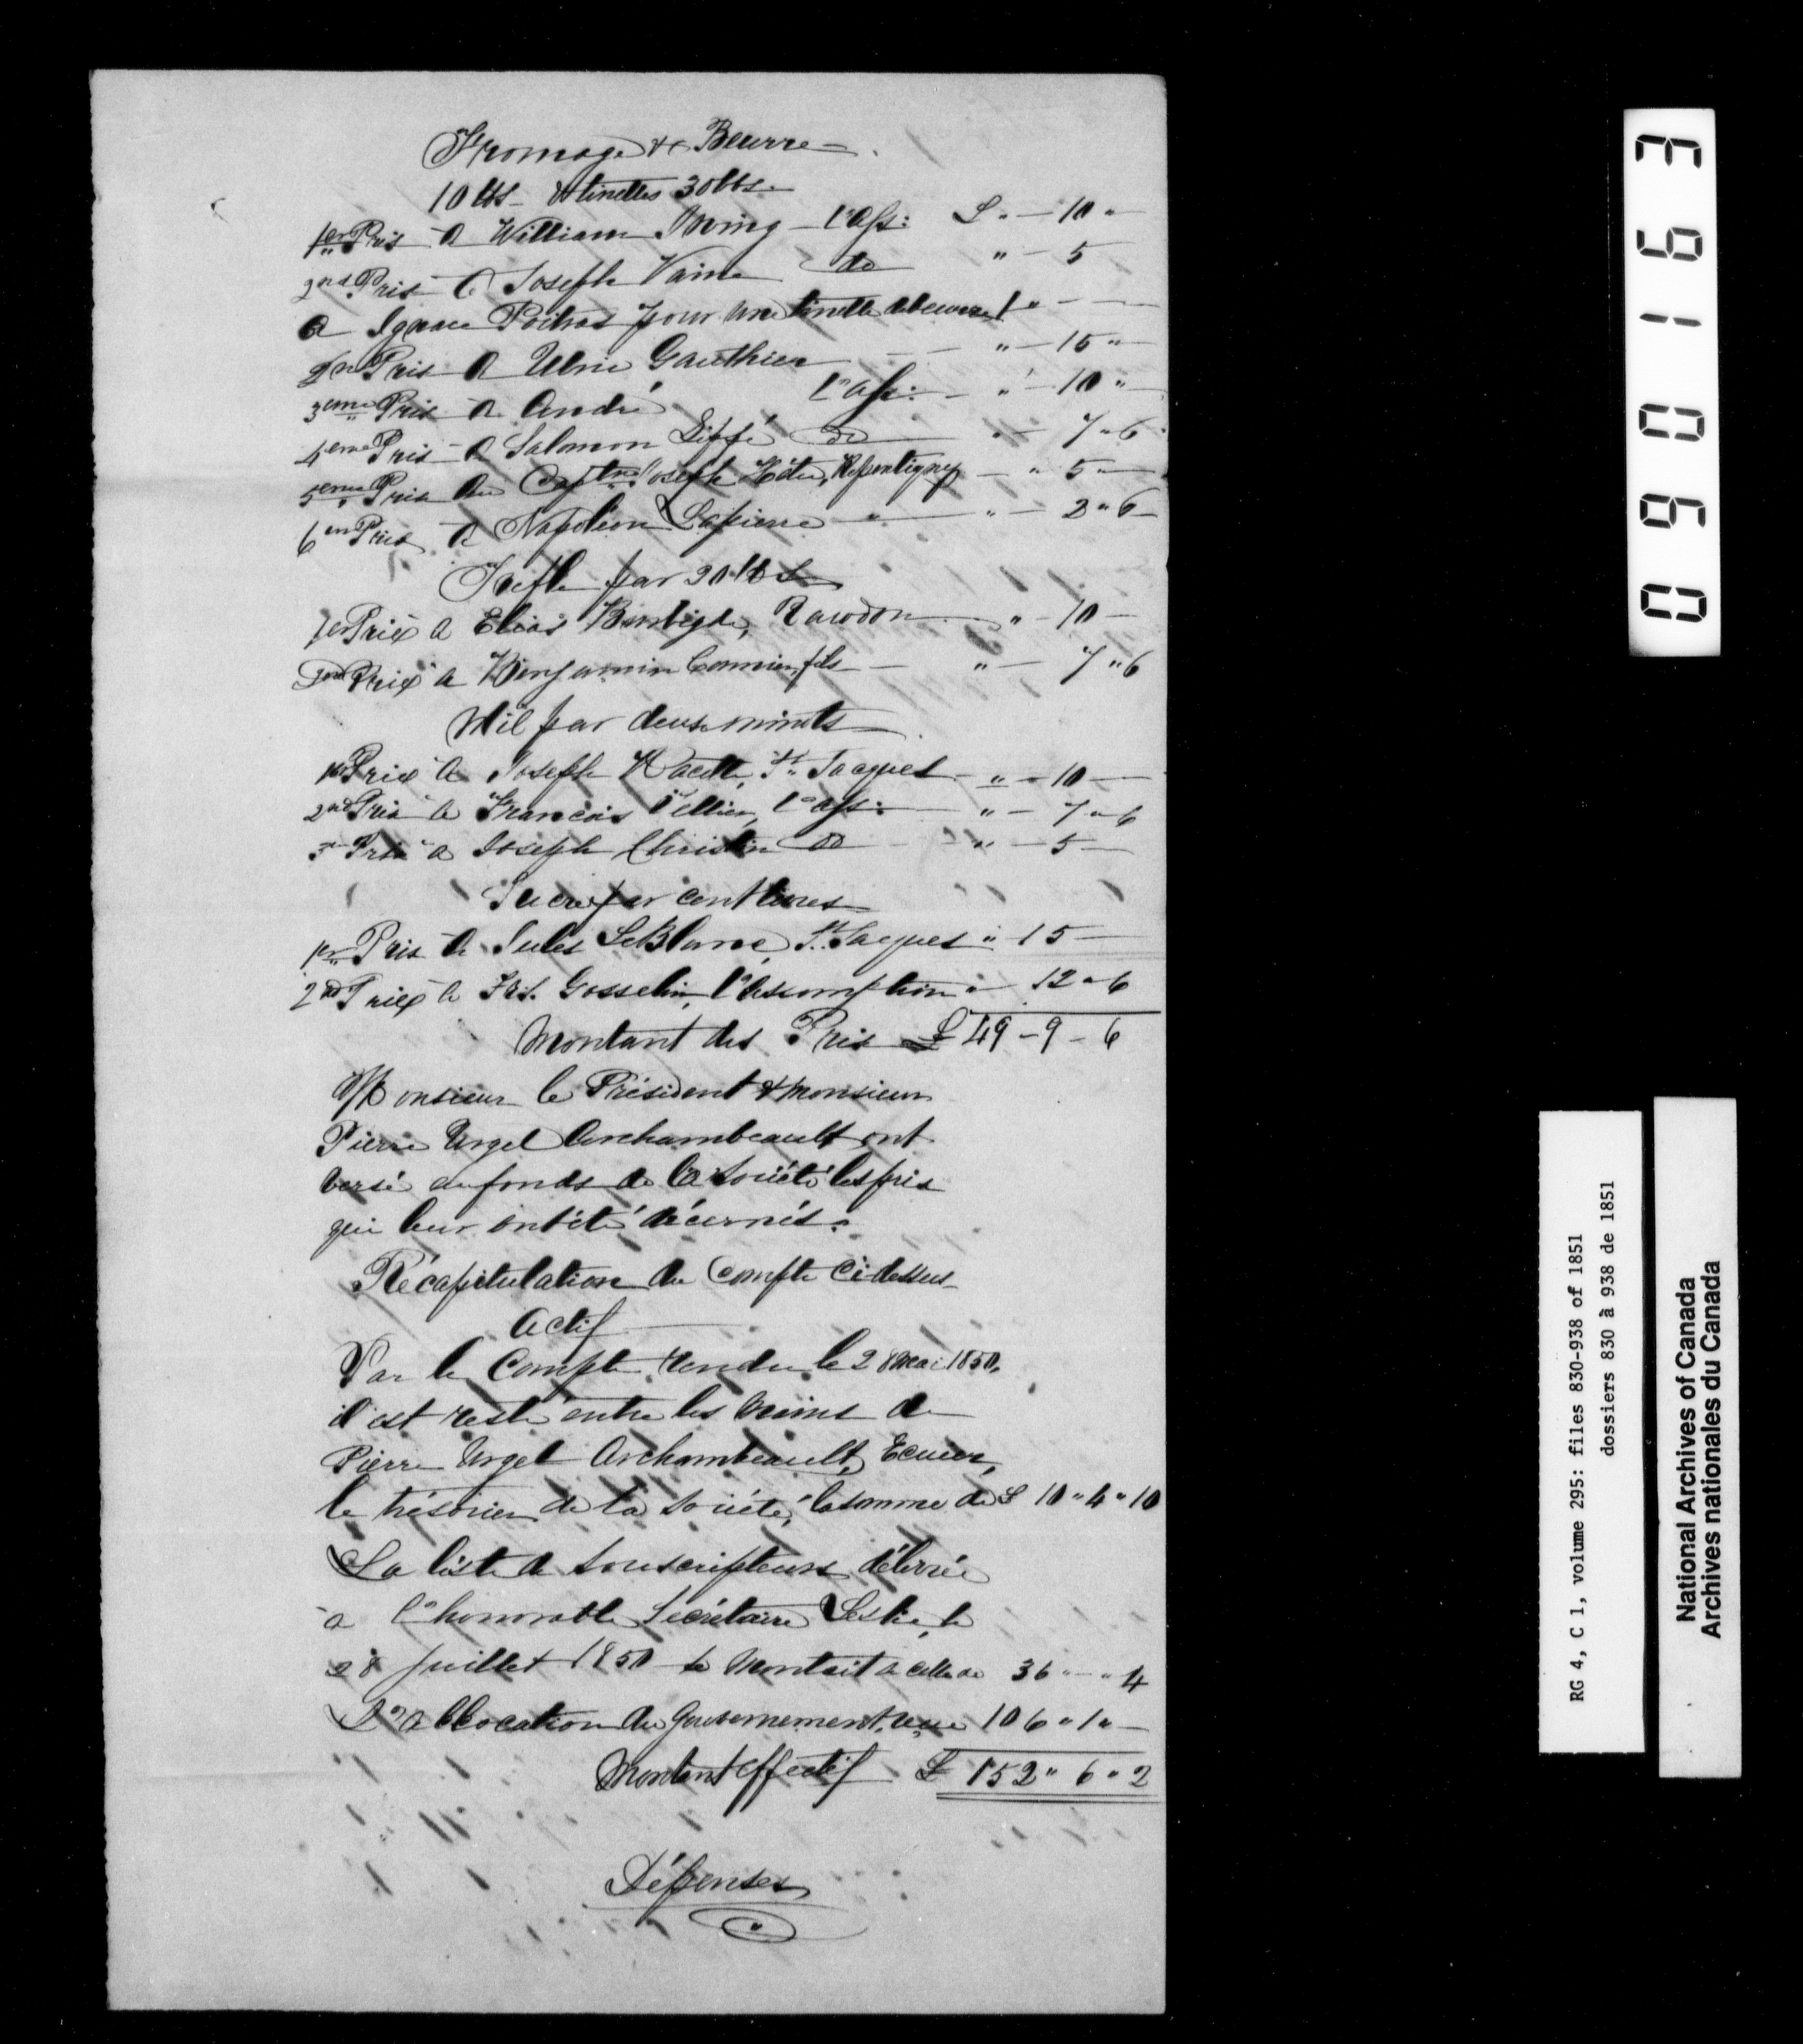 Fromage & Beurre
10 lbs - & tinettes 30 lbs
1er Prix à William Ewing - l'Ass: £ " - 10 "
2nd Prix à Joseph Vaine do " - 5
à Ignace Poitras pour une tinette de beurre 1 " - —
2n Prix à Ulric Gauthier " - 15 "
3eme Prix à André l'Ass: - " - 10 "
4eme Prix - à Salomon Liffé do " - 7 " 6
5eme Prix au Captne Joseph Hétu, Repentigny - " 5 " —
6em Prix à Napoléon Lapierre " " - 2 " 6 -
Trefle par 20 lbs
1er Prix à Elias Rawdon " - 10 -
2nd Prix à Benjamin fils - " - 7 " 6
Mil par deux minots
1er Prix à Joseph St. Jacques " - 10 -
2nd Prix à François Tellier, l'Ass: " - 7 " 6
3e Prix à Joseph Christin do " - 5 -
Sucre par cent livres
1er Prix à Jules LeBlanc, St. Jacques " 15 -
2nd Prix à Frs. Gosselin, l'Assomption " 12 " 6
Montant des Prix £ 49 - 9 - 6
Monsieur le Président & Monsieur
Pierre Urgel Archambeault ont
versé au fonds de la Société les prix
qui leur ont été décernés.
Récapitulation du Compte Ci dessus
Actif
Par le Compte rendu le 28 Mai 1850,
il est resté entre les mains de
Pierre Urgel Archambeault, Ecuier,
le trésorier de la Société, la somme de £ 10 " 4 " 10
La liste de Souscripteurs délivrée
à l'honorable Secrétaire Leslie, le
28 Juillet 1850 se Montait à celle de 36 " - " 4
L'allocation du Gouvernement, reçue 106 " 1 " -
Montant Effectif £ 152 " 6 " 2
Dépenses
090163
RG 4, C 1, volume 295: files 830-938 of 1851
dossiers 830 à 938 de 1851
National Archives of Canada
Archives nationales du Canada